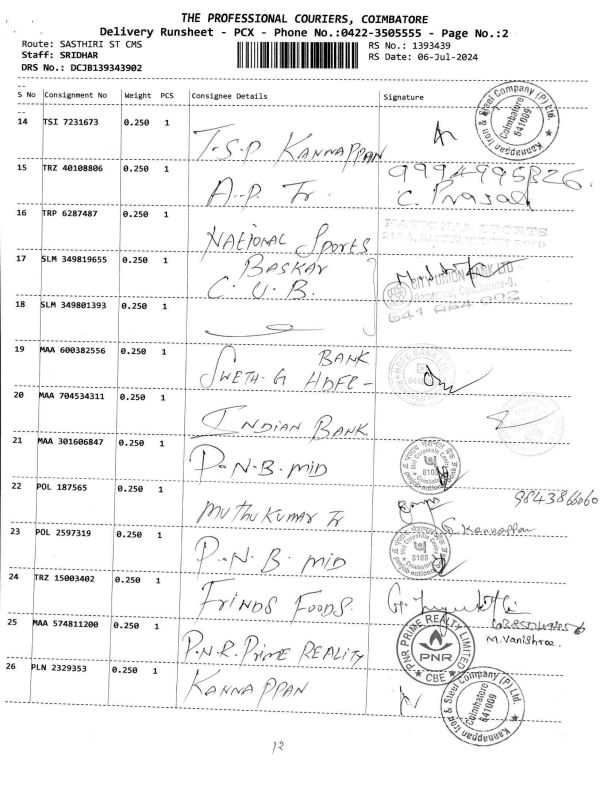 THE PROFESSIONAL COURIERS, COIMBATORE
Delivery Runsheet - PCX - Phone No.:0422-3505555 - Page No.:2
Route: SASTHIRI ST CMS
RS No.: 1393439
Staff: SRIDHAR
RS Date: 06-Jul-2024
DRS No.: DCJB139343902
S No Consignment No Weight PCS Consignee Details Signature
14 TSI 7231673 0.250 1 T.S.P KANNAPPAN
Kannappan Iron & Steel Company (P) Ltd.
Coimbatore
641009
15 TRZ 40108806 0.250 1 A.P. Tr. 9994995826.
C. Prasad
16 TRP 6287487 0.250 1 NATIONAL Sports
NATIONAL SPORTS
17 SLM 349819655 0.250 1 BASKAR
C.U.B.
CITY UNION BANK LTD
641 002
18 SLM 349801393 0.250 1
19 MAA 600382556 0.250 1 BANK
SWETH.G HDFC -
HDFC BANK LTD
20 MAA 704534311 0.250 1 INDIAN BANK
21 MAA 301606847 0.250 1 P.N.B. MID
8108
22 POL 187565 0.250 1 MUTHU KUMAR Tr 9843866060
S. Kannappan
23 POL 2597319 0.250 1 P.N.B. MID
8108
24 TRZ 15003402 0.250 1 FRINDS FOODS.
25 MAA 574811200 0.250 1 P.N.R. PRIME REALITY
M. Vanishree.
PNR PRIME REALTY LIMITED
PNR
CBE
26 PLN 2329353 0.250 1 KANNAPPAN
Kannappan Iron & Steel Company (P) Ltd.
Coimbatore
641009
12